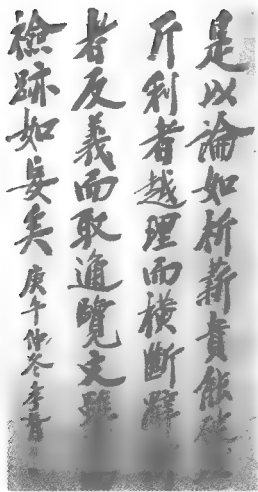 是以論如析薪貴能破
斤利者越理而橫斷辭
者反義而取通覽文雖
檢跡如妄矣
庚午仲冬李